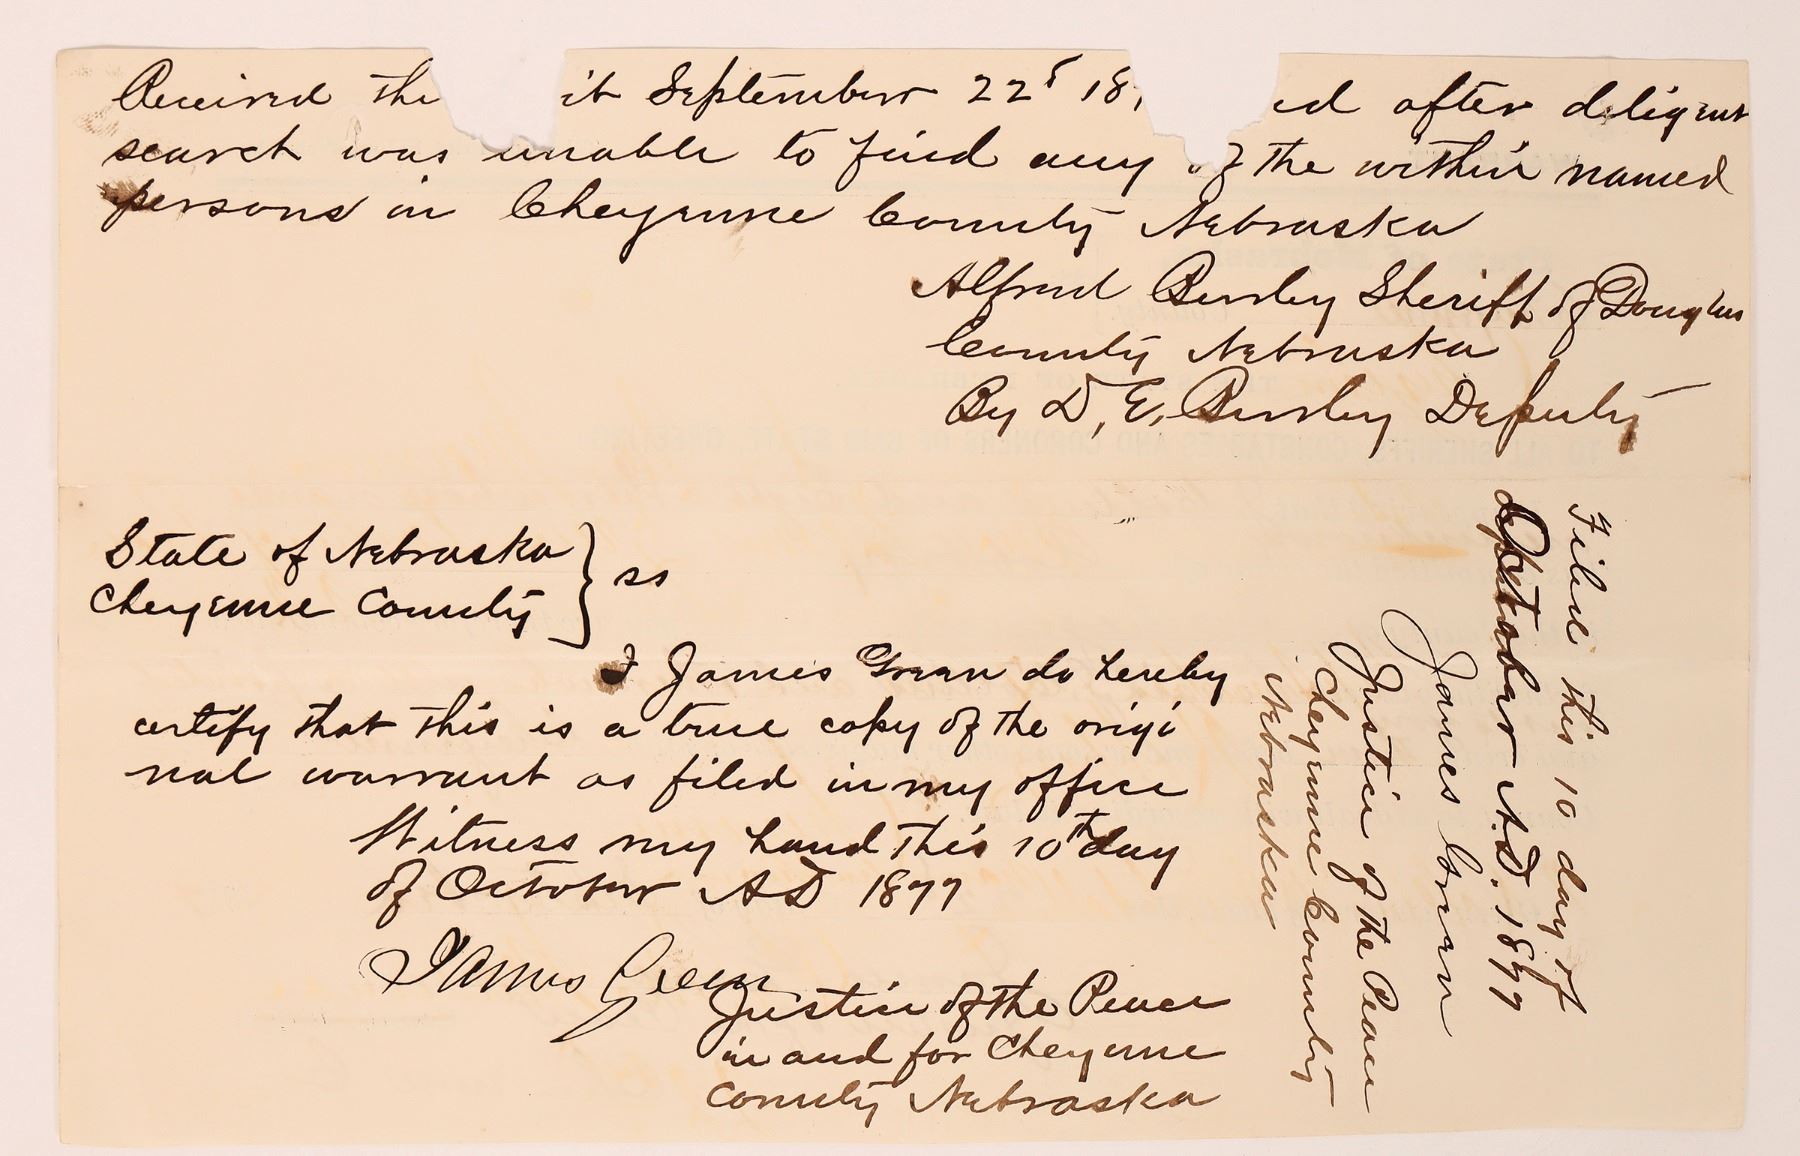 Received the it September 22d 18 ed after diligent
search was unable to find any of the within named
persons in Cheyenne County Nebraska
Alfred Burley Sheriff of Douglas
County Nebraska
By D. E. Burley Deputy
State of Nebraska } ss
Cheyenne County
I James Green do hereby
certify that this is a true copy of the origi
nal warrant as filed in my office
Witness my hand this 10th day
of October AD 1877
James Green
Justice of the Peace
in and for Cheyenne
County Nebraska
Filed this 10 day of
October A.D. 1877
James Green
Justice of the Peace
Cheyenne County
Nebraska